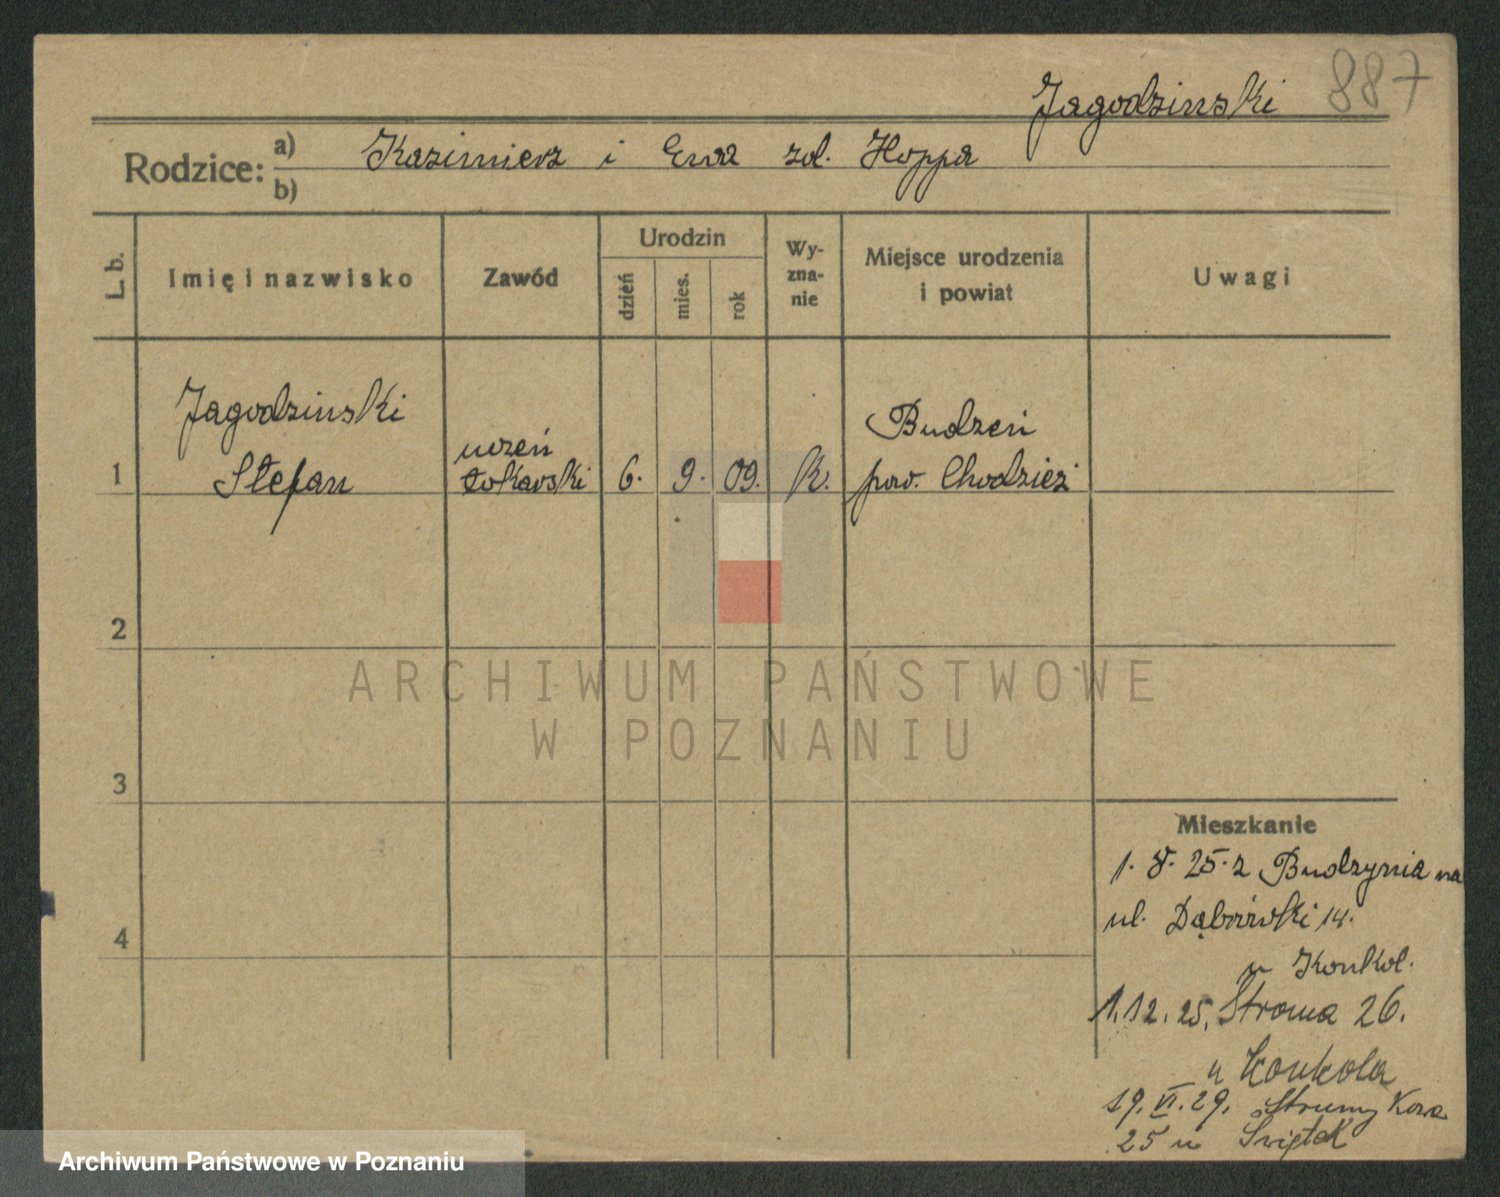 887
Jagodzinski
Rodzice: a) Kazimierz i Ewa zd. Hoppa
b)
L. b. Imię i nazwisko Zawód Urodzin dzień mies. rok Wyznanie Miejsce urodzenia i powiat Uwagi
Jagodzinski Budzeń
uczeń
1 Stefan tokarski 6. 9. 09. K. pow. Chodzież
2
ARCHIWUM PAŃSTWOWE
W POZNANIU
3
Mieszkanie
1. 8. 25. z Budzynia na
ul. Dąbrówki 14.
4
u Konkol.
1.12.25. Stroma 26.
u Konkola
19. VI. 29. 
25 u Świątek
Archiwum Państwowe w Poznaniu